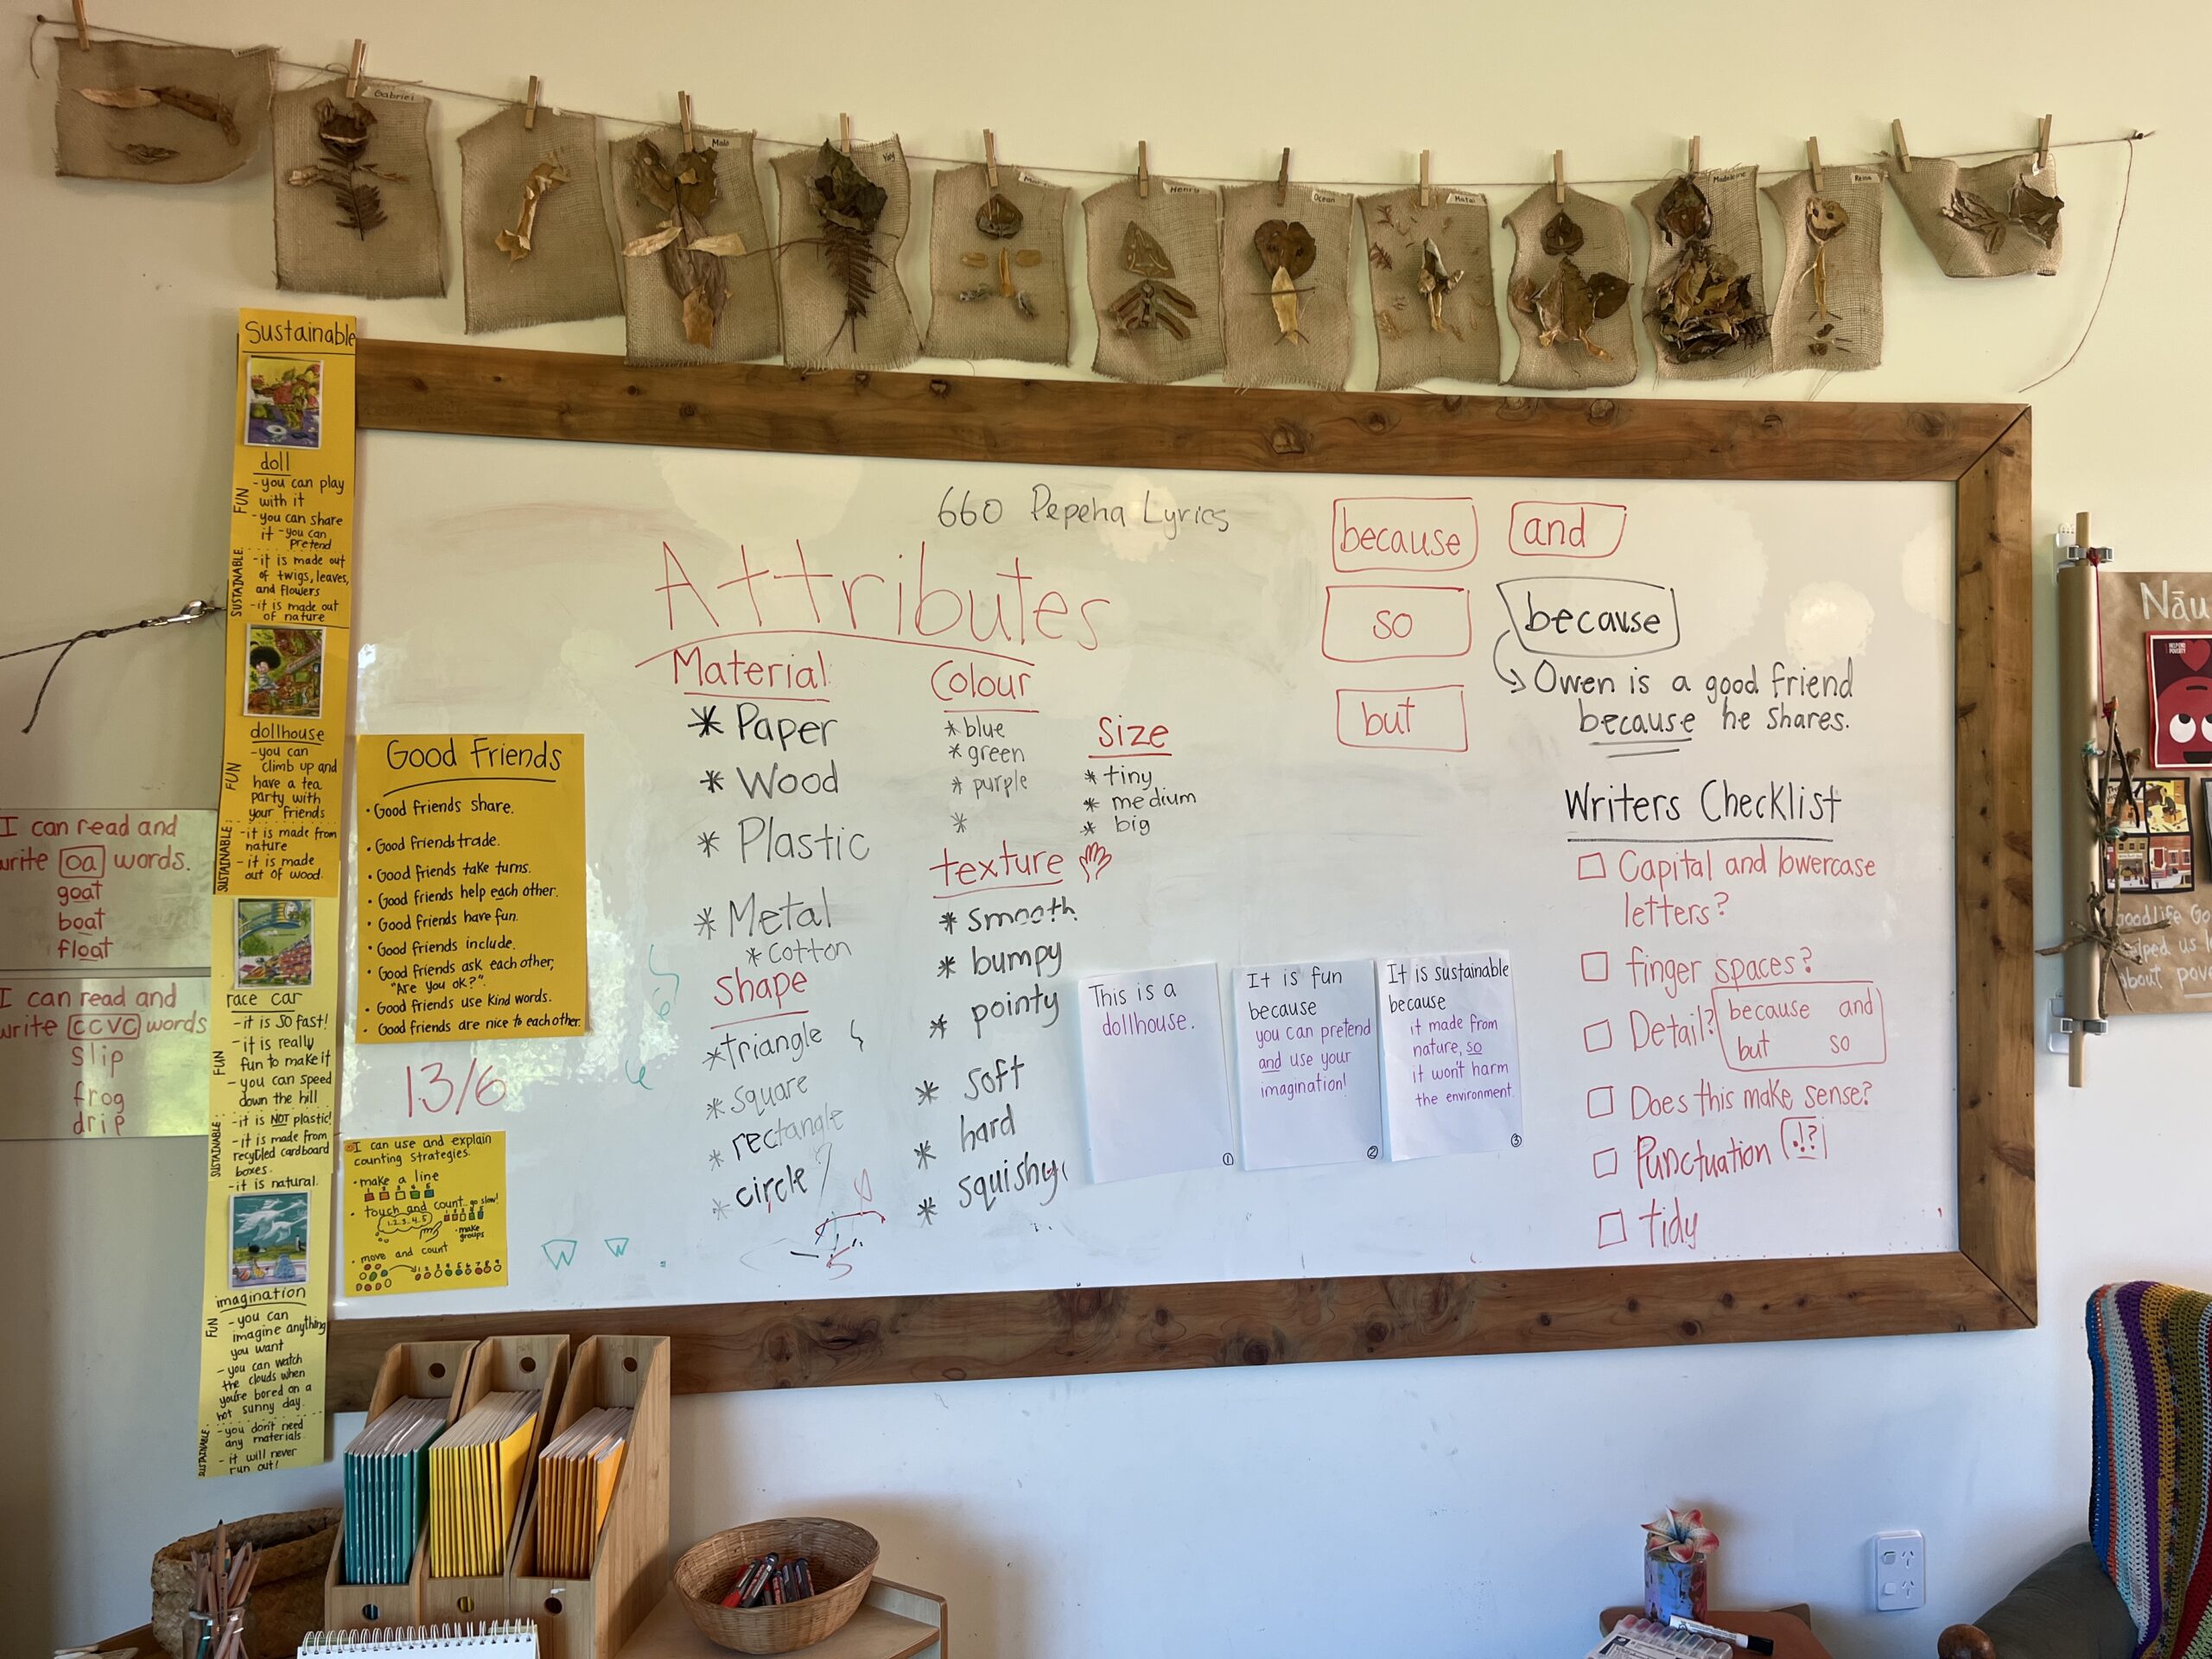 Gabriel
Malo
Henry
Ocean
Matai
Madeleine
Reina
Sustainable
doll
FUN
-you can play
with it
-you can share
it -you can
pretend
SUSTAINABLE
-it is made out
of twigs, leaves,
and flowers
-it is made out
of nature
dollhouse
FUN
-you can
climb up and
have a tea
party with
your friends
SUSTAINABLE
-it is made from
nature
-it is made
out of wood.
race car
FUN
-it is SO fast!
-it is really
fun to make it
-you can speed
down the hill
SUSTAINABLE
-it is NOT plastic!
-it is made from
recycled cardboard
boxes.
-it is natural.
imagination
FUN
-you can
imagine anything
you want
-you can watch
the clouds when
you're bored on a
hot sunny day.
SUSTAINABLE
-you don't need
any materials
-it will never
run out!
I can read and
write oa words.
goat
boat
float
I can read and
write CCVC words
slip
frog
drip
Good Friends
• Good friends share.
• Good friends trade.
• Good friends take turns.
• Good friends help each other.
• Good friends have fun.
• Good friends include.
• Good friends ask each other,
"Are you ok?".
• Good friends use kind words.
• Good friends are nice to each other.
13/6
I can use and explain
counting strategies.
• make a line
• touch and count.. go slow!
1, 2, 3, 4, 5
• make
groups
• move and count
660 Pepeha Lyrics
Attributes
Material
* Paper
* Wood
* Plastic
* Metal
* Cotton
Shape
* triangle
* square
* rectangle
* circle
Colour
* blue
* green
* purple
*
texture
* smooth
* bumpy
* pointy
* soft
* hard
* squishy
Size
* tiny
* medium
* big
because
and
so
because
but
Owen is a good friend
because he shares.
This is a
dollhouse.
1
It is fun
because
you can pretend
and use your
imagination!
2
It is sustainable
because
it made from
nature, so
it won't harm
the environment.
3
Writers Checklist
Capital and lowercase
letters?
finger spaces?
Detail? because and
but so
Does this make sense?
Punctuation .!?
tidy
Nāu
Goodlife Go
helped us l
about pov